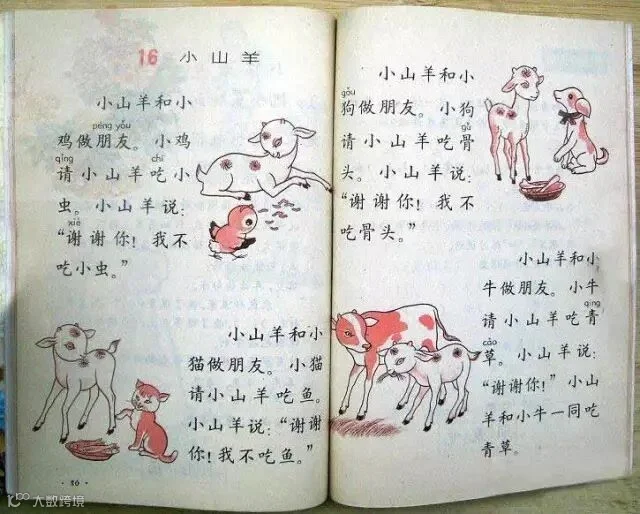 16 小山羊
小山羊和小
péng yǒu
鸡做朋友。小鸡
qǐng chī
请小山羊吃小
虫。小山羊说:
xiè
“谢谢你!我不
吃小虫。”
小山羊和小
猫做朋友。小猫
请小山羊吃鱼。
小山羊说:“谢谢
你!我不吃鱼。”
小山羊和小
gǒu
狗做朋友。小狗
gǔ
请小山羊吃骨
头。小山羊说:
“谢谢你!我不
吃骨头。”
小山羊和小
牛做朋友。小牛
qīng
请小山羊吃青
cǎo
草。小山羊说:
“谢谢你!”小山
羊和小牛一同吃
青草。
大数跨境